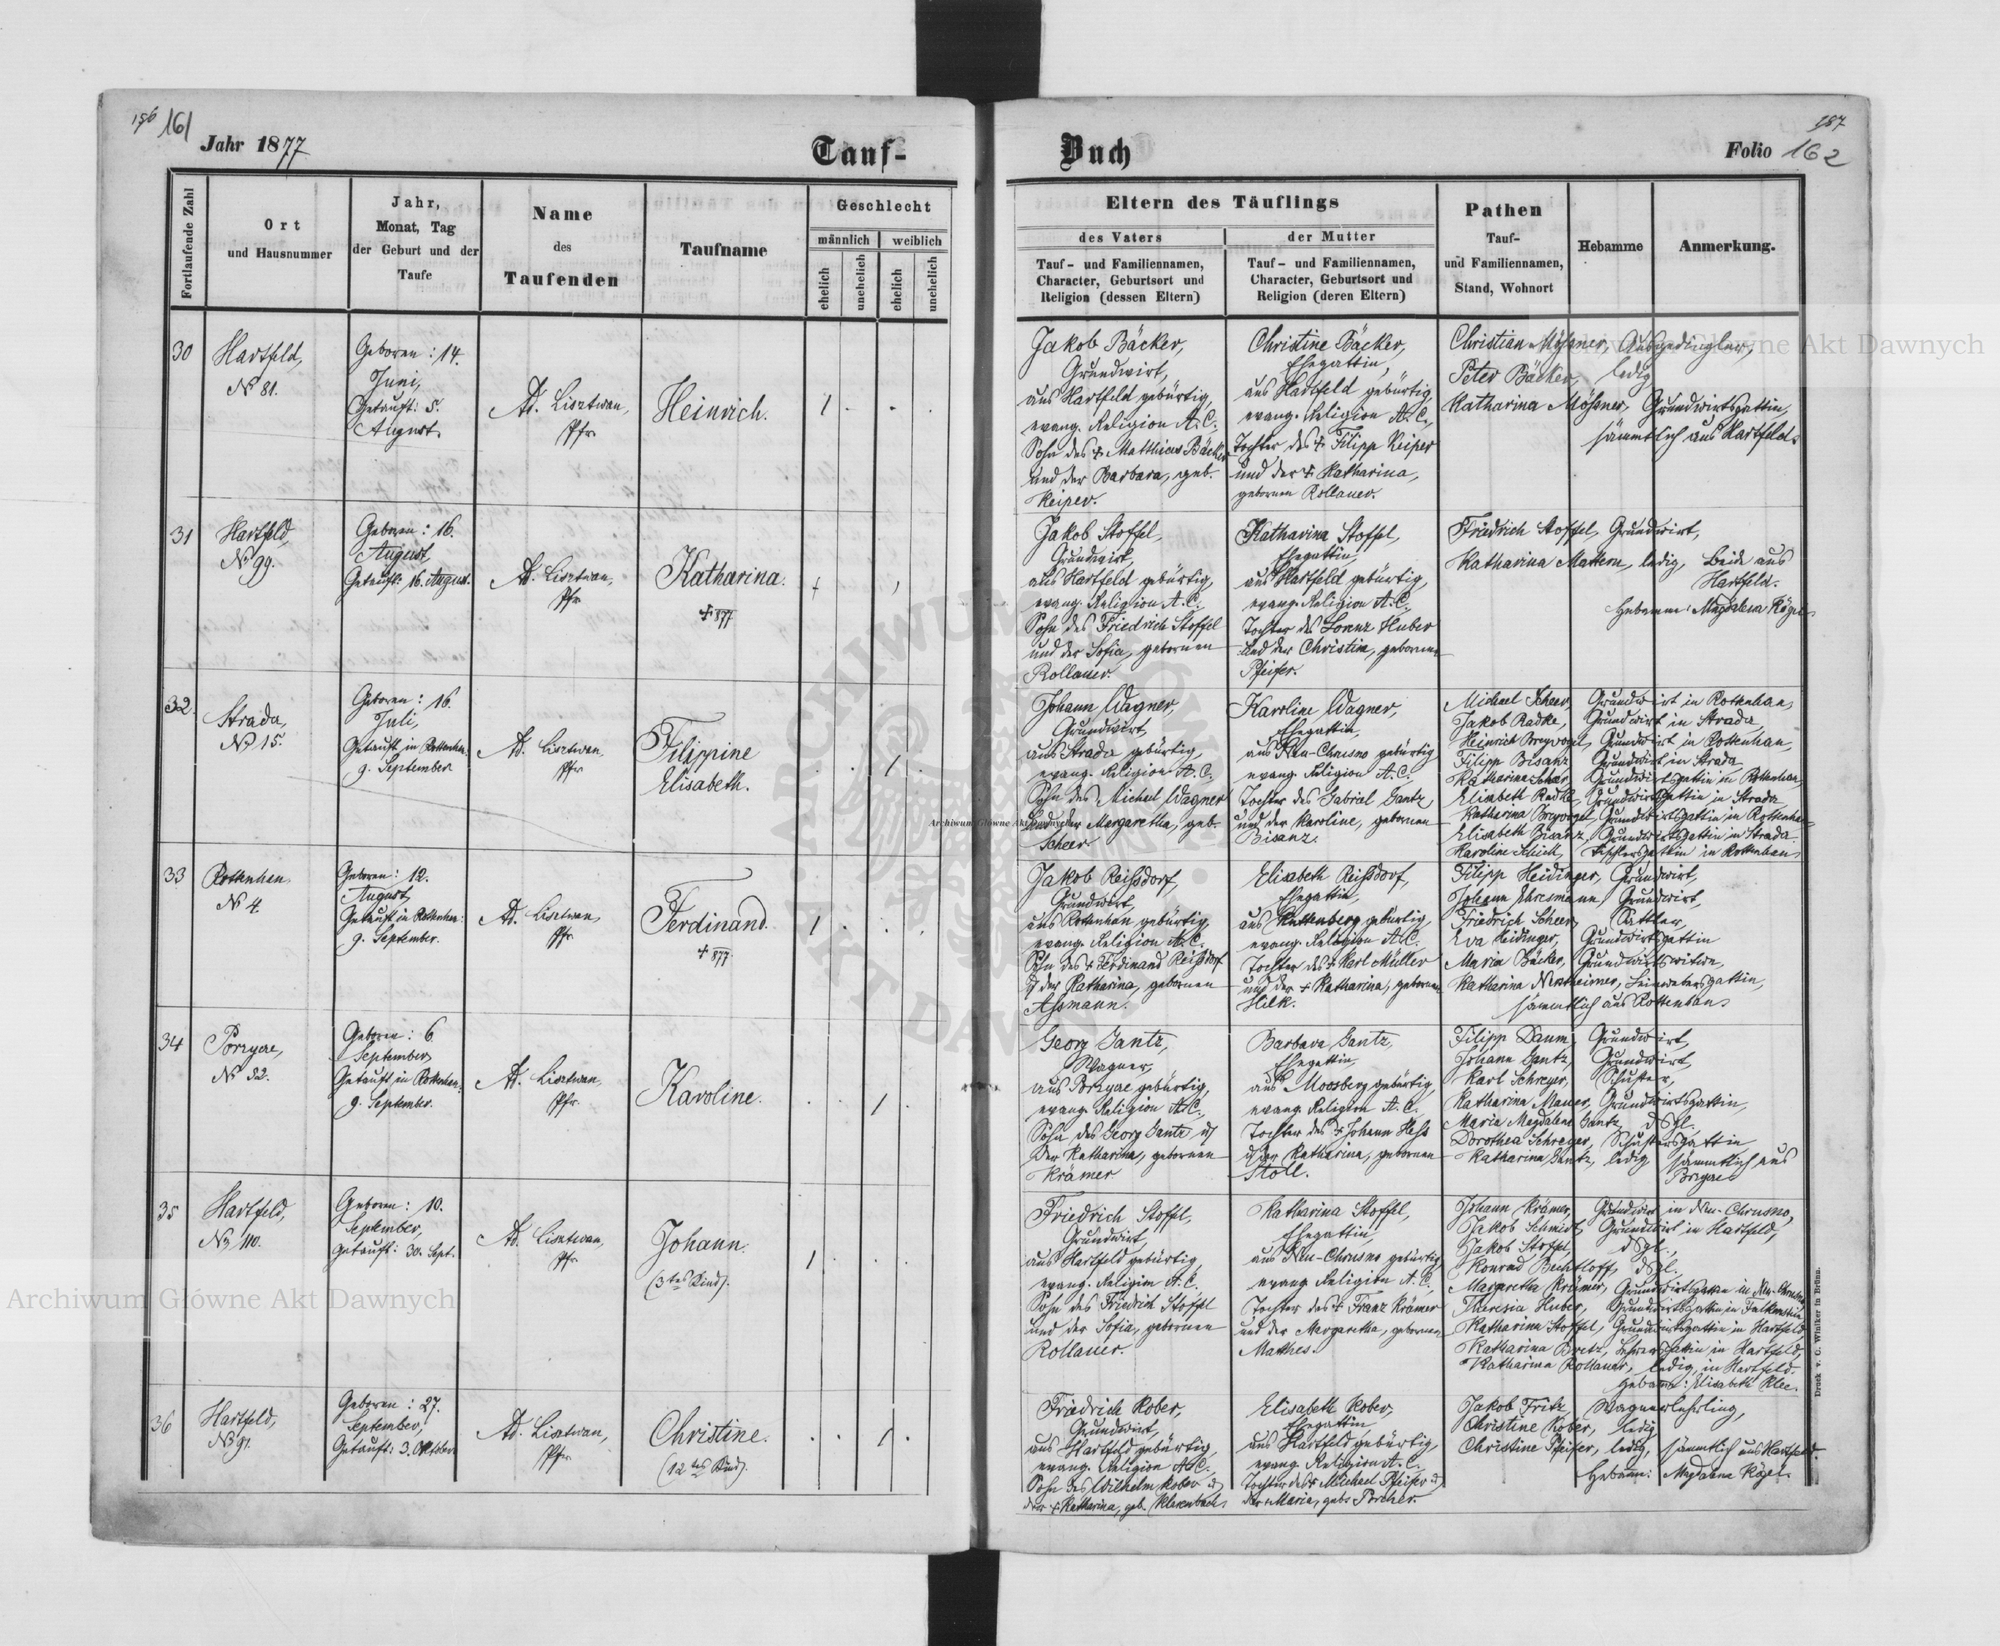 196 161
Jahr 1877
Tauf-
Fortlaufende Zahl
Ort
und Hausnummer
Jahr,
Monat, Tag
der Geburt und der
Taufe
Name
des
Taufenden
Taufname
Geschlecht
männlich
weiblich
ehelich
unehelich
ehelich
unehelich
30
Hartfeld,
No 81.
Geboren: 14.
Juni,
Getauft: 5.
August.
Ad. Lisztwan,
Pfr.
Heinrich.
31
Hartfeld,
No 99.
Geboren: 16.
August,
Getauft: 16. August.
Ad. Lisztwan,
Pfr.
Katharina.
+ 877
32.
Strada,
No 15.
Geboren: 16.
Juli,
Getauft in Rottenhan:
9. September
Ad. Lisztwan,
Pfr
Filippine
Elisabeth.
33
Rottenhan
No 4.
Geboren: 12.
August,
Getauft in Rottenhan:
9. September.
Ad. Lisztwan,
Pfr
Ferdinand.
+ 877.
34
Porzyce,
No 32.
Geboren: 6
September
Getauft in Rottenhan:
9. September.
Ad. Lisztwan,
Pfr.
Karoline.
35
Hartfeld,
No 110.
Geboren: 10.
September,
Getauft: 30. Sept.
Ad. Lisztwan,
Pfr.
Johann.
(3tes Kind).
36
Hartfeld,
No 91.
Geboren: 27.
September,
Getauft: 3. Oktober
Ad. Lisztwan,
Pfr.
Christine.
(12tes Kind).
Buch
187
Folio 162
Eltern des Täuflings
des Vaters
Tauf- und Familiennamen,
Character, Geburtsort und
Religion (dessen Eltern)
der Mutter
Tauf- und Familiennamen,
Character, Geburtsort und
Religion (deren Eltern)
Pathen
Tauf-
und Familiennamen,
Stand, Wohnort
Hebamme
Anmerkung.
Jakob Bäcker,
Grundwirt,
aus Hartfeld gebürtig,
evang. Religion A. C.,
Sohn des + Matthias Bäcker
und der Barbara, geb.
Keiper.
Christine Bäcker,
Ehegattin,
aus Hartfeld gebürtig,
evang. Religion A. C.,
Tochter des + Filipp Keiper
und der + Katharina,
gebornen Rollauer.
Christian Mößner, Ausgedingler,
Peter Bäcker, ledig
Katharina Mößner, Grundwirtsgattin,
sämmtlich aus Hartfeld.
Jakob Stoffel,
Grundwirt,
aus Hartfeld gebürtig,
evang. Religion A. C.,
Sohn des Friedrich Stoffel
und der Sofia, gebornen
Rollauer.
Katharina Stoffel,
Ehegattin,
aus Hartfeld gebürtig,
evang. Religion A. C.,
Tochter des Lorenz Huber
und der Christine, gebornen
Pfeifer.
Friedrich Stoffel, Grundwirt,
Katharina Mattern, ledig, Beide aus
Hartfeld.
Hebamme: Magdalena Kögel
Johann Wagner,
Grundwirt,
aus Strada gebürtig,
evang. Religion A. C.
Sohn des Michael Wagner
und der Margaretha, geb.
Scheer
Karoline Wagner,
Ehegattin,
aus Neu-Chrusno gebürtig
evang. Religion A. C.,
Tochter des Gabriel Gantz,
und der Karoline, gebornen
Bisanz.
Michael Scheer, Grundwirt in Rottenhan,
Jakob Radke, Grundwirt in Strada,
Heinrich Breyvogel, Grundwirt in Rottenhan,
Filipp Bisanz, Grundwirt in Strada,
Katharina Scheer, Grundwirtsgattin in Rottenhan,
Elisabeth Radke, Grundwirtsgattin in Strada
Katharina Breyvogel Grundwirtsgattin in Rottenhan
Elisabeth Bisanz, Grundwirtsgattin in Strada
Karoline Schick, Tischlersgattin in Rottenhan
Jakob Reihsdorf,
Grundwirt,
aus Rottenhan gebürtig,
evang. Religion A. C.
Sohn des + Ferdinand Reihsdorf
u der Katharina, gebornen
Aßmann.
Elisabeth Reihsdorf,
Ehegattin,
aus Kuttenberg gebürtig,
evang. Religion A. C.
Tochter des + Karl Müller
und der + Katharina, gebornen
Hilk.
Filipp Heidinger, Grundwirt,
Johann Ehresmann, Grundwirt,
Friedrich Scheer, Sattler,
Eva Heidinger, Grundwirtsgattin
Maria Bäcker, Grundwirtswitwe,
Katharina Wertheimer, Leinwebersgattin,
sämmtlich aus Rottenhan.
Georg Gantz,
Wagner,
aus Porzyce gebürtig,
evang. Religion A. C.,
Sohn des Georg Gantz u
der Katharina, gebornen
Krämer
Barbara Gantz,
Ehegattin,
aus Moosberg gebürtig,
evang. Religion A. C.
Tochter des + Johann Heß
u der Katharina, gebornen
Stoll.
Filipp Daum, Grundwirt,
Johann Gantz, Grundwirt,
Karl Schreyer, Schuster,
Katharina Mauer, Grundwirtsgattin,
Maria Magdalena Gantz, dtgl.,
Dorothea Schreyer, Schustersgattin
Katharina Gantz, ledig sämmtlich aus
Porzyce
Friedrich Stoffel,
Grundwirt,
aus Hartfeld gebürtig,
evang. Religion A. C.
Sohn des Friedrich Stoffel
und der Sofia, gebornen
Rollauer.
Katharina Stoffel,
Ehegattin,
aus Neu-Chrusno gebürtig,
evang. Religion A. C.
Tochter des + Franz Krämer
und der Margaretha, gebornen
Matthes.
Johann Krämer, Grundwirt in Neu-Chrusno,
Jakob Schmidt, Grundwirt in Hartfeld,
Jakob Stoffel, dtgl.,
Konrad Bechtloff, dtgl.
Margaretha Krämer, Grundwirtsgattin in Neu-Chrusno
Theresia Huber, Grundwirtsgattin in Falkenstein
Katharina Stoffel, Grundwirtsgattin in Hartfeld,
Katharina Bretz, Lehrersgattin in Hartfeld,
Katharina Rollauer, ledig in Hartfeld.
Hebamme: Elisabeth Klee.
Friedrich Kober,
Grundwirt,
aus Hartfeld gebürtig,
evang. Religion A. C.
Sohn des Wilhelm Kober u
der + Katharina, geb. Klarenbach.
Elisabeth Kober,
Ehegattin
aus Hartfeld gebürtig,
evang. Religion A. C.
Tochter des + Michael Pfeifer u
der Maria, geb. Porcher.
Jakob Fritz, Wagnerlehrling,
Christine Kober, ledig
Christine Pfeifer, ledig, sämmtlich aus Hartfeld.
Hebamme: Magdalena Kögel.
Druck v. C. Winiker in Brünn.
Archiwum Główne Akt Dawnych
Archiwum Główne Akt Dawnych
Archiwum Główne Akt Dawnych